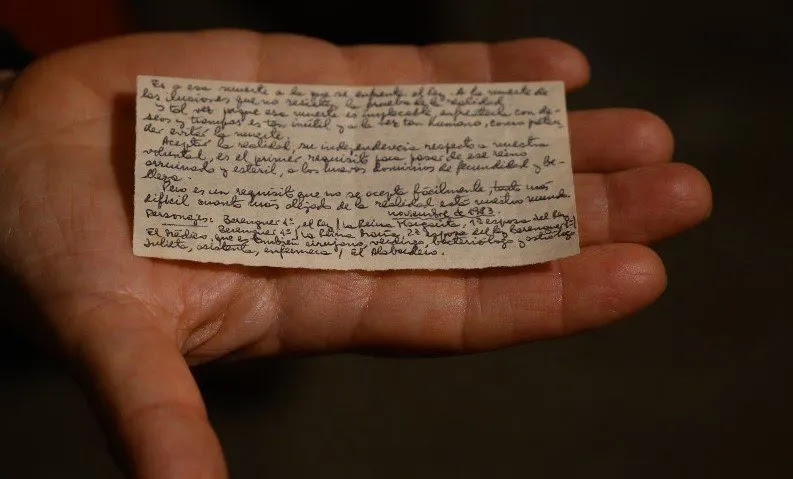 Es a esa muerte a la que se enfrenta el rey. A la muerte de
las ilusiones que no resisten la prueba de la realidad.
Y tal vez porque esa muerte es implacable, enfrentarla con de-
seos y trampas es tan inútil y a la vez tan humano, como preten-
der evitar la muerte.
Aceptar la realidad, su independencia respecto a nuestra
voluntad, es el primer requisito para pasar de ese reino
arruinado y estéril, a los nuevos dominios de fecundidad y be-
lleza.
Pero es un requisito que no se acepta fácilmente, tanto más
difícil cuanto más alejado de la realidad está nuestro mundo.
noviembre de 1983.
Personajes: Berenguer 1º, el rey / La Reina Margarita, 1ª esposa del Rey
Berenguer 1º / La Reina María, 2ª esposa del Rey Berenguer 1º /
El Médico, que es también cirujano, verdugo, bacteriólogo y astrólogo /
Julieta, asistenta, enfermera / El Alabardero.